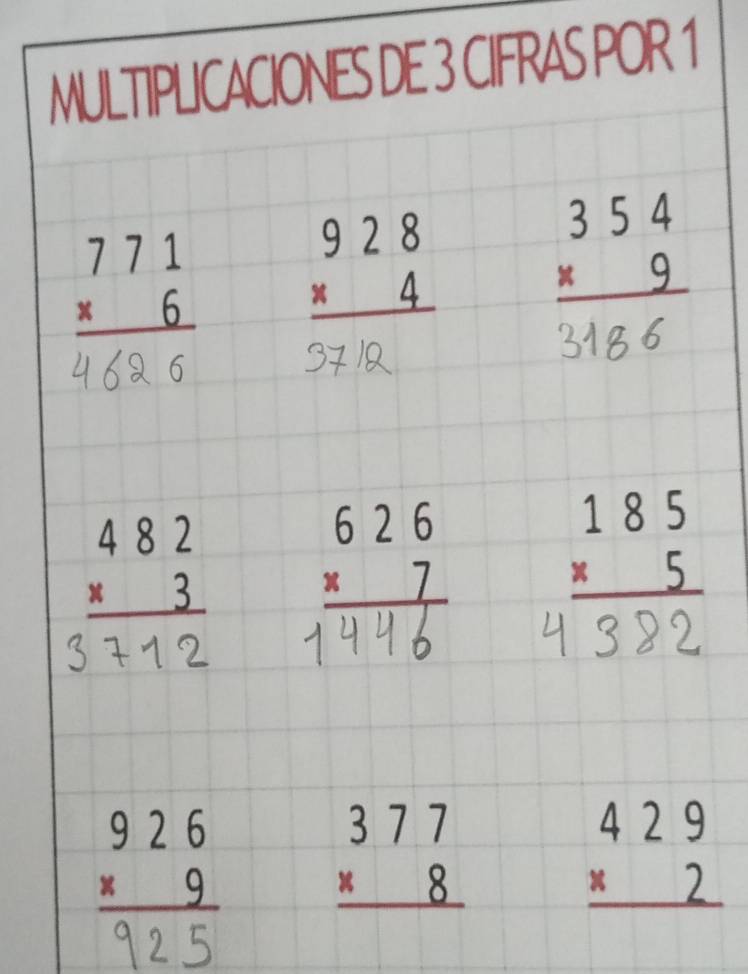 MULTIPLICACIONES DE 3 CIFRAS POR 1
771 928 354
× 6 × 4 × 9
4626 3712 3186
482 626 185
× 3 × 7 × 5
3712 1446 4382
926 377 429
× 9 × 8 × 2
925